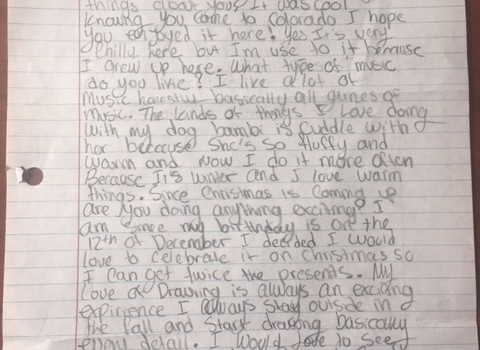 things about you! It was cool
knowing you came to Colorado I hope
you enjoyed it here! Yes It's very
chilly here but I'm use to it because
I grew up here. What type of music
do you like? I like a lot of
music honestly basically all gunes of
music. The kinds of things I love doing
with my dog bambi is cuddle with
her because She's so fluffy and
warm and now I do it more often
Because It's winter and I love warm
things. Since Christmas is coming up
are you doing anything exciting? I
am since my birthday is on the
12th of December I decided I would
love to celebrate it on Christmas so
I can get twice the presents. My
love of Drawing is always an exciting
expirience I always stay outside in
the fall and start drawing basically
every detail. I would love to see